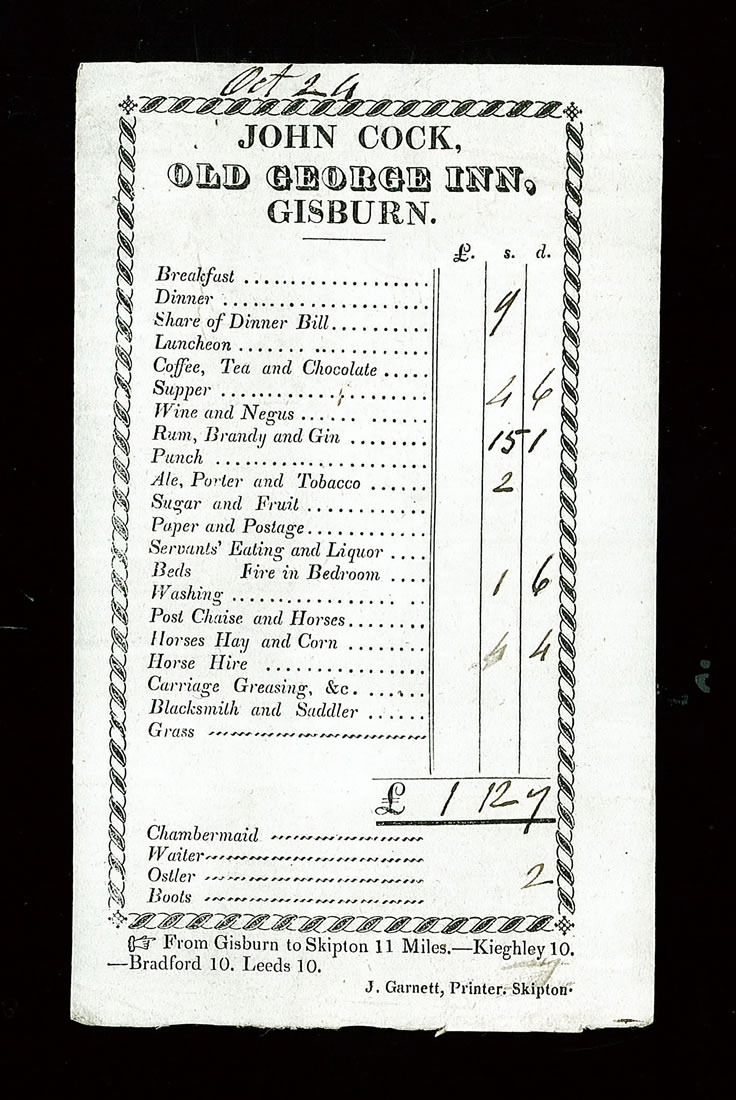 Oct 24
JOHN COCK,
OLD GEORGE INN,
GISBURN.
£. s. d.
Breakfast
Dinner 9
Share of Dinner Bill
Luncheon
Coffee, Tea and Chocolate
Supper 4 6
Wine and Negus
Rum, Brandy and Gin 15 1
Punch
Ale, Porter and Tobacco 2
Sugar and Fruit
Paper and Postage
Servants' Eating and Liquor
Beds Fire in Bedroom 1 6
Washing
Post Chaise and Horses
Horses Hay and Corn 4
Horse Hire
Carriage Greasing, &c.
Blacksmith and Saddler
Grass
£ 1 12 7
Chambermaid
Waiter
Ostler 2
Boots
☞ From Gisburn to Skipton 11 Miles.—Kieghley 10.
—Bradford 10. Leeds 10.
J. Garnett, Printer. Skipton.